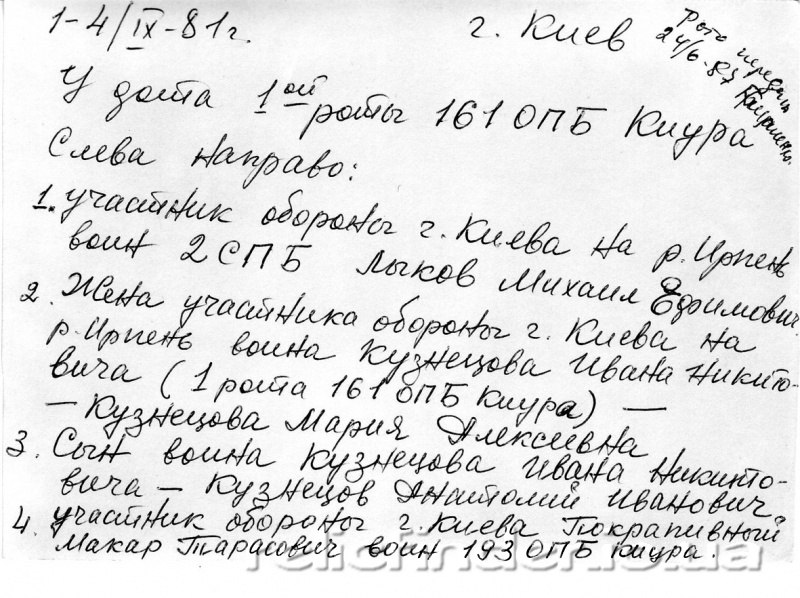 1-4/IX-81г. г. Киев
Фото передал
24/6-87
У дота 1ой роты 161 ОПБ Киура
Слева направо:
1. участник обороны г. Киева на р. Ирпень
воин 2 СПБ Лыков Михаил Ефимович.
2. Жена участника обороны г. Киева на
р. Ирпень воина Кузнецова Ивана Никито-
вича (1 рота 161 ОПБ Киура) —
— Кузнецова Мария Алексеевна
3. Сын воина Кузнецова Ивана Никито-
вича — Кузнецов Анатолий Иванович.
4. участник обороны г. Киева Покрапивный
Макар Тарасович воин 193 ОПБ киура.
relicfinder.io.ua